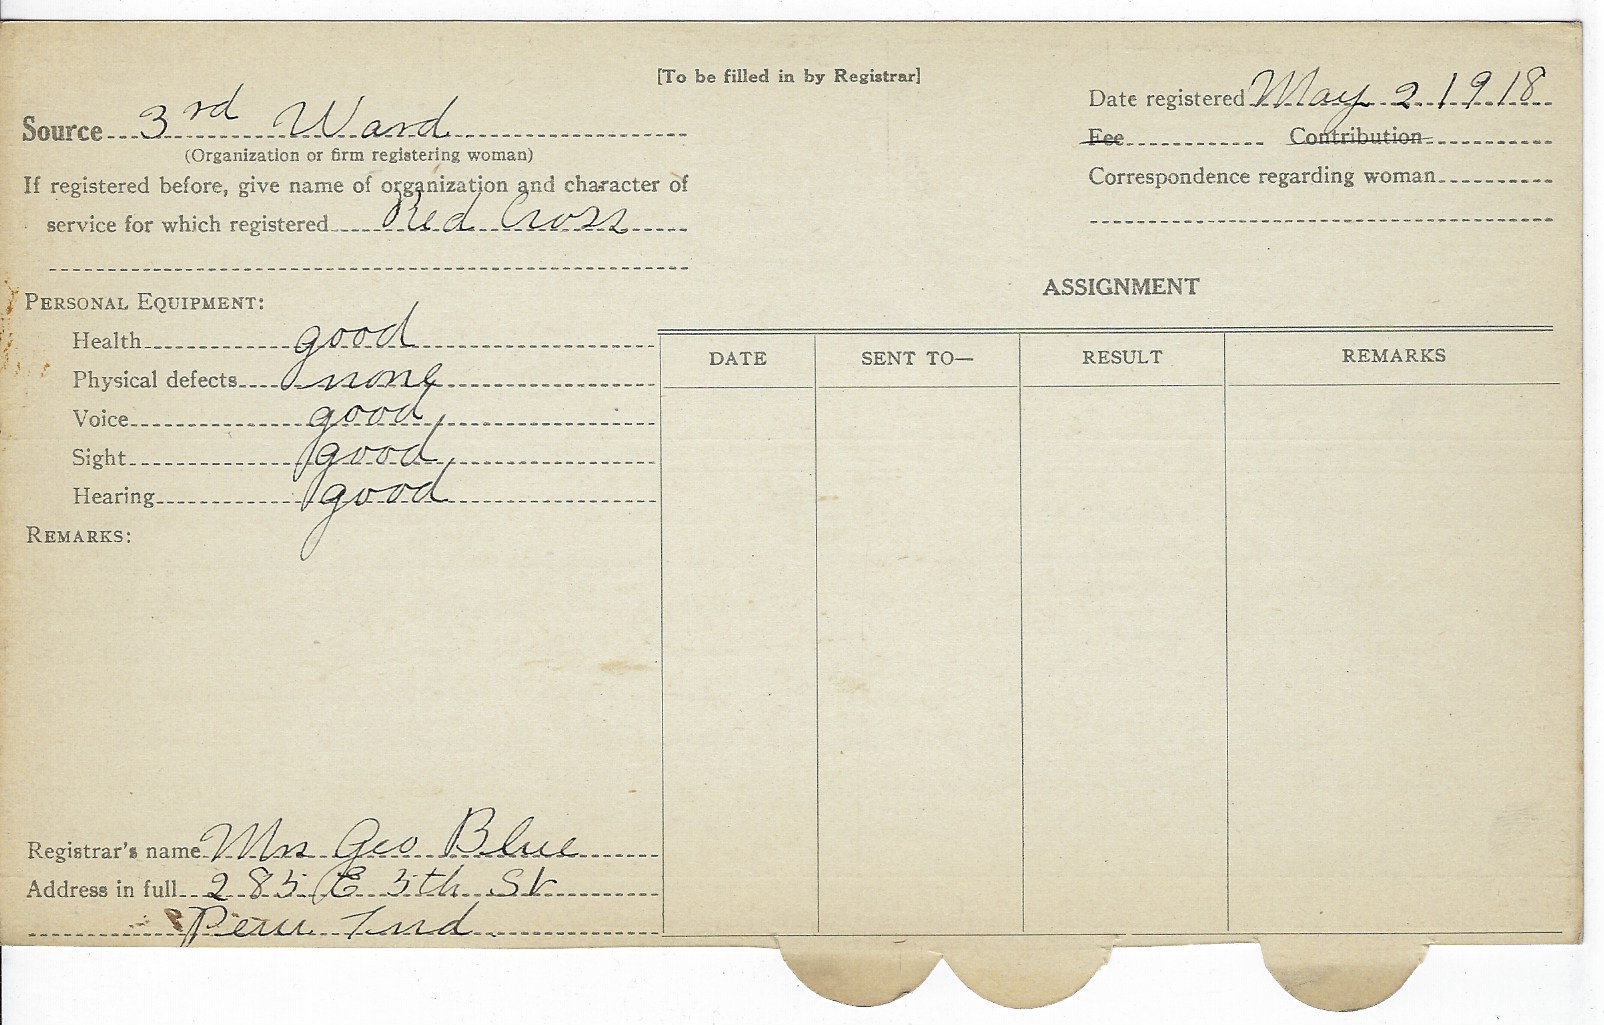 [To be filled in by Registrar]
Source 3rd Ward
(Organization or firm registering woman)
If registered before, give name of organization and character of
service for which registered Red Cross
Date registered May 2 1918
Fee Contribution
Correspondence regarding woman
PERSONAL EQUIPMENT:
Health good
Physical defects none
Voice good
Sight good
Hearing good
REMARKS:
ASSIGNMENT
DATE SENT TO— RESULT REMARKS
Registrar's name Mrs Geo Blue
Address in full 285 E 5th St
Peru Ind.